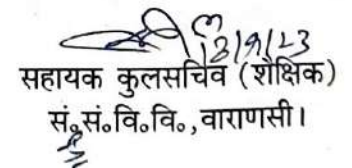 12/9/23
सहायक कुलसचिव (शैक्षिक)
सं॰सं॰वि॰वि॰,वाराणसी।